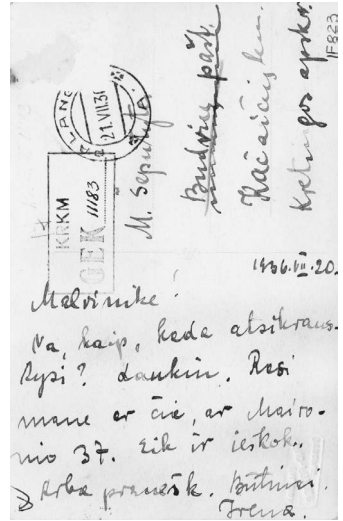 PALANGA
21.VII.36
KRKM
GEK 11183
F823
M. Sepun
Budrių pašt.
Kačaičių km.
Kretingos apskr.
1936.VII.20.
Malvinike!
Na, kaip, kada atsikraus-
tysi? Laukiu. Rasi
mane ar čia, ar Mairo-
nio 37. Eik ir ieškok.
Arba pranešk. Būtinai.
Irena.